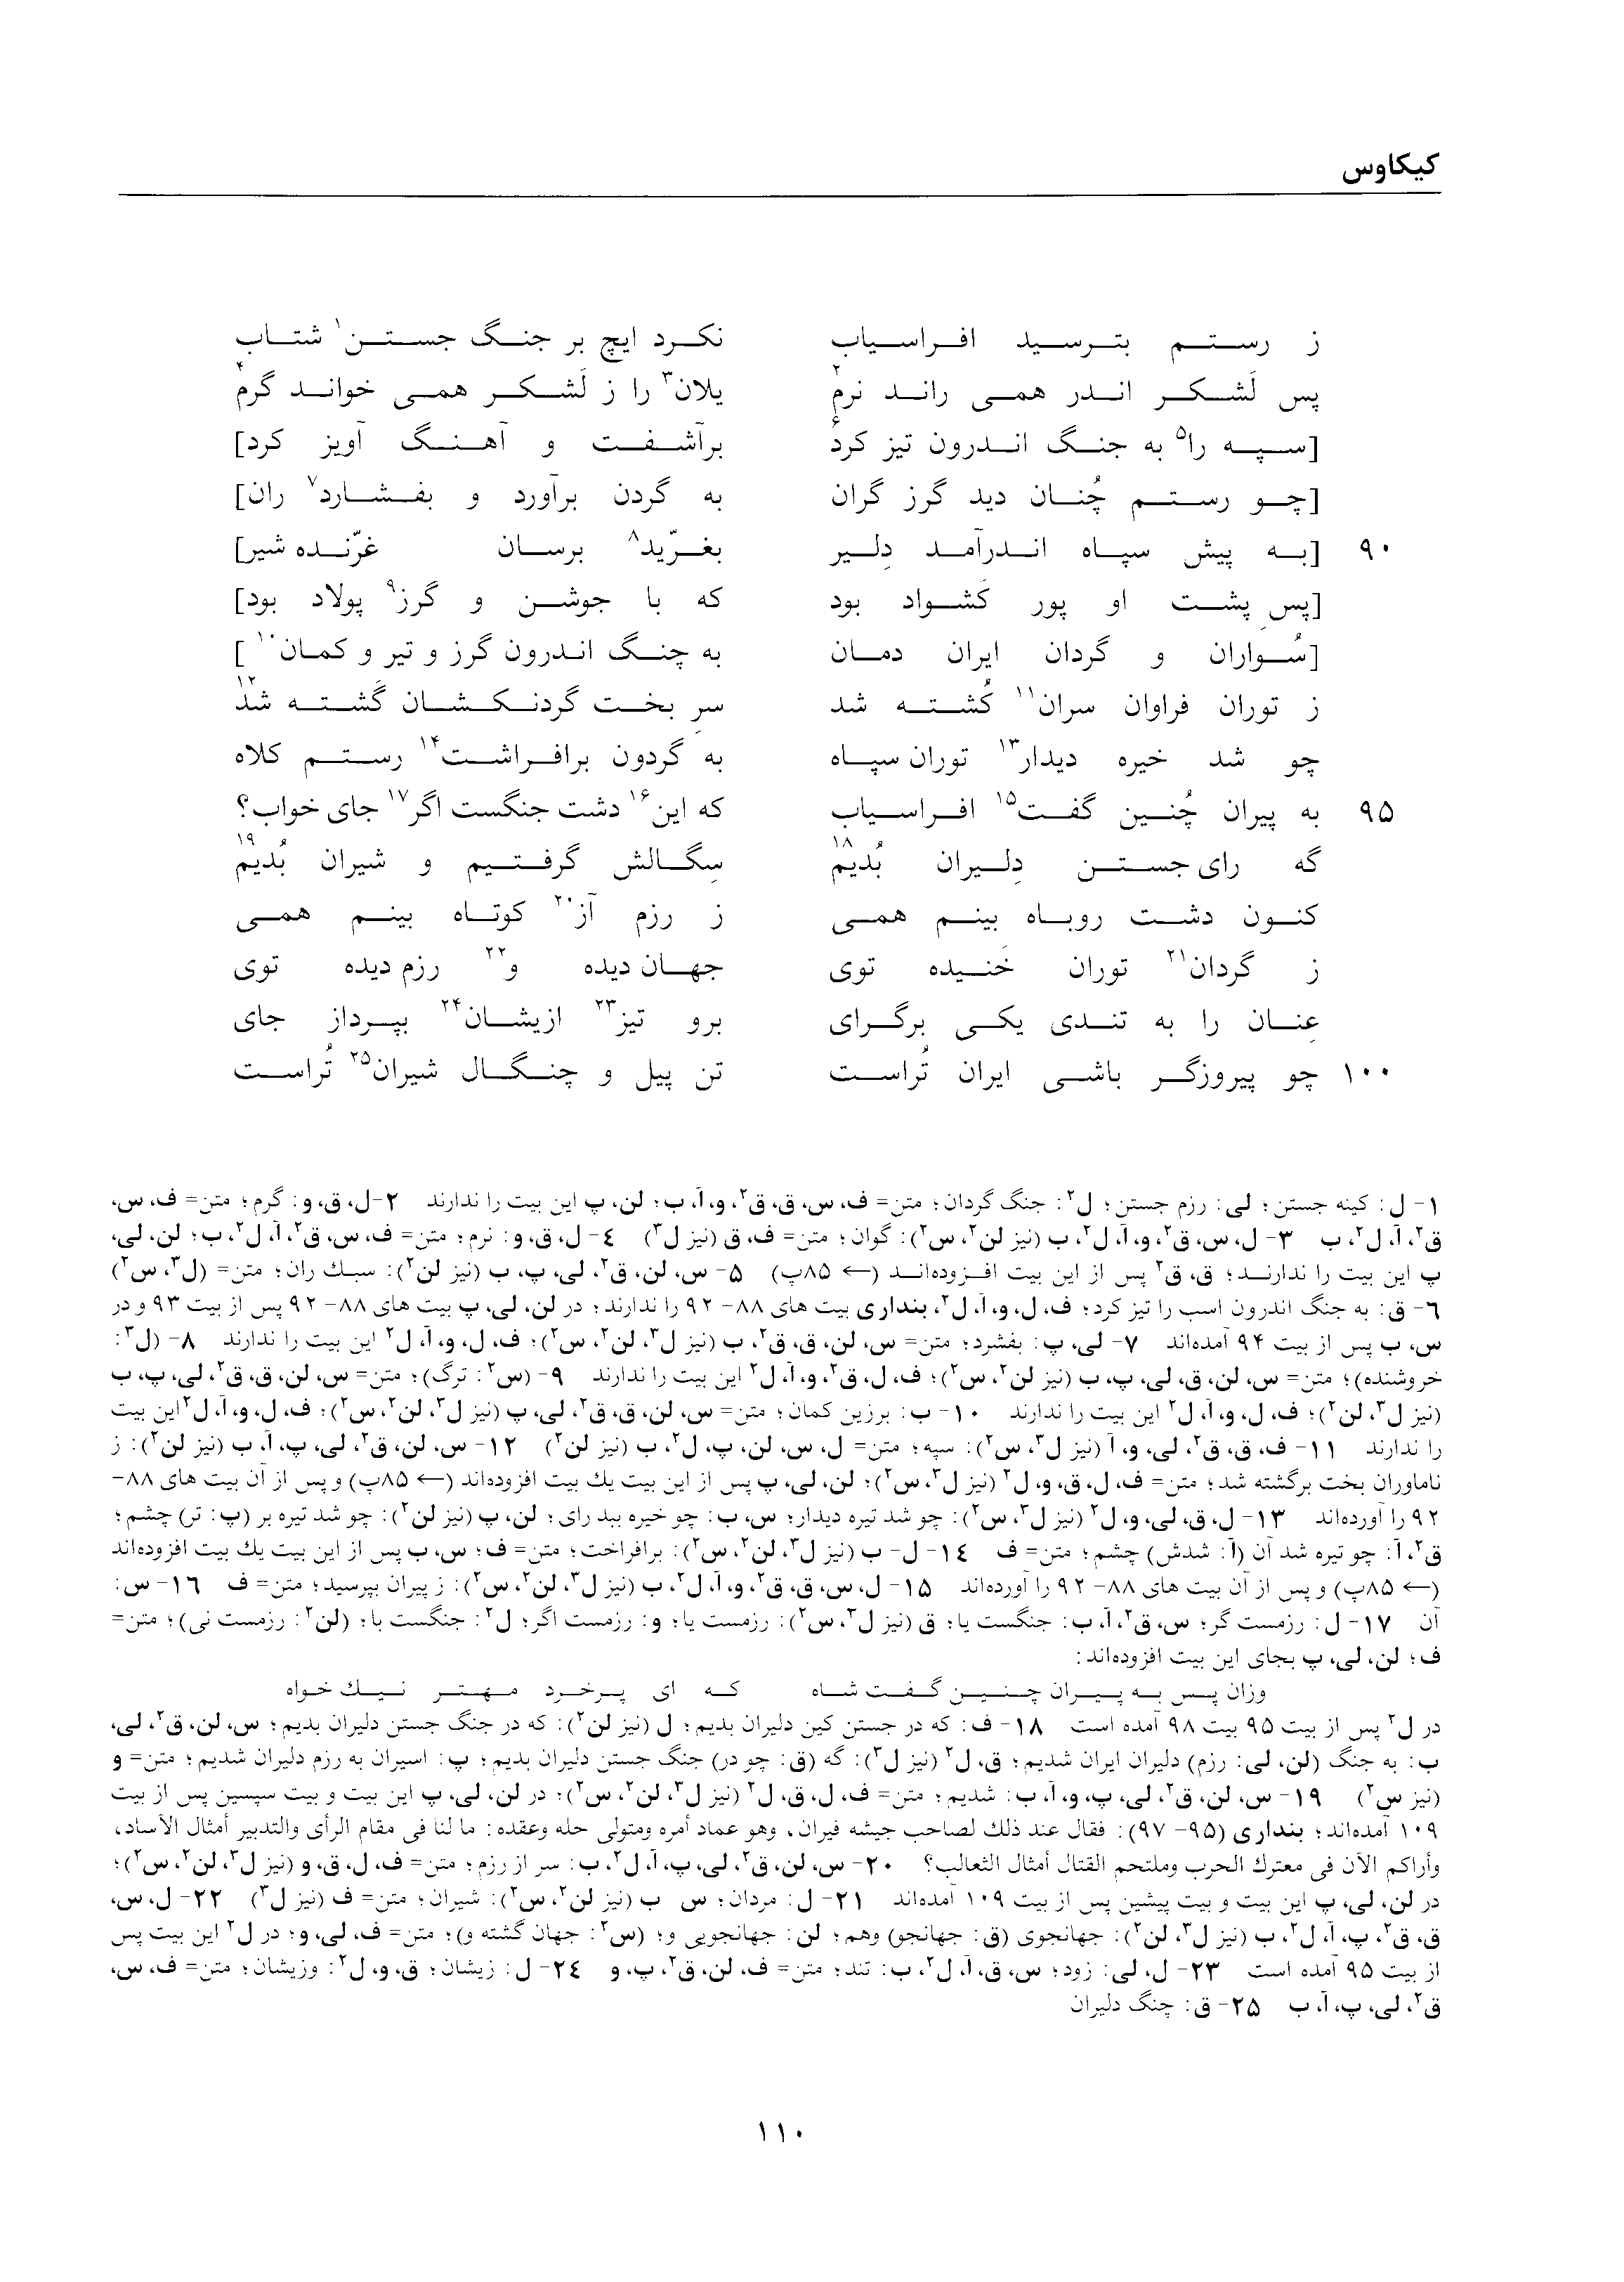 کیکاوس
ز رستم بترسید افراسیاب نکرد ایچ بر جنگ جستن۱ شتاب
پس لَشکر اندر همی راند نرم۲ یلان۳ را ز لَشکر همی خواند گرم۴
[سپه را۵ به جنگ اندرون تیز کرد۶ برآشفت و آهنگ آویز کرد]
[چو رستم چُنان دید گرز گران به گردن برآورد و بفشارد۷ ران]
۹۰ [به پیش سپاه اندرآمد دِلیر بغرّید۸ برسان غرّنده شیر]
[پسِ پشت او پور کَشواد بود که با جوشن و گرز۹ پولاد بود]
[سُواران و گردان ایران دمان به چنگ اندرون گرز و تیر و کمان۱۰]
ز توران فراوان سران۱۱ کُشته شد سرِ بخت گردنکشان گَشته شد۱۲
چو شد خیره دیدار۱۳ توران سپاه به گردون برافراشت۱۴ رستم کلاه
۹۵ به پیران چُنین گفت۱۵ افراسیاب که این۱۶ دشت جنگست اگر۱۷ جای خواب؟
گه رای جستن دِلیران بُدیم۱۸ سِگالش گرفتیم و شیران بُدیم۱۹
کنون دشت روباه بینم همی ز رزم آز۲۰ کوتاه بینم همی
ز گردان۲۱ توران خَنیده توی جهان دیده و۲۲ رزم دیده توی
عِنان را به تندی یکی برگرای برو تیز۲۳ ازیشان۲۴ بپرداز جای
۱۰۰ چو پیروزگر باشی ایران تُراست تن پیل و چنگال شیران۲۵ تُراست
۱- ل: کینه جستن؛ لی: رزم جستن؛ ل۲: جنگ گردان؛ متن= ف، س، ق، ق۲، و، آ، ب؛ لن، پ این بیت را ندارند ۲-ل، ق، و: گرم؛ متن= ف، س،
ق۲، آ، ل۲، ب ۳- ل، س، ق۲، و، آ، ل۲، ب (نیز لن۲، س۲): گوان؛ متن= ف، ق (نیز ل۳) ٤- ل، ق، و: نرم؛ متن= ف، س، ق۲، آ، ل۲، ب؛ لن، لی،
پ این بیت را ندارند؛ ق، ق۲ پس از این بیت افزوده‌اند (← ۸۵پ) ۵- س، لن، ق۲، لی، پ، ب (نیز لن۲): سبك ران؛ متن= (ل۳، س۲)
٦- ق: به جنگ اندرون اسب را تیز کرد؛ ف، ل، و، آ، ل۲، بنداری بیت های ۸۸- ۹۲ را ندارند؛ در لن، لی، پ بیت های ۸۸- ۹۲ پس از بیت ۹۳ و در
س، ب پس از بیت ۹۴ آمده‌اند ۷- لی، پ: بفشرد؛ متن= س، لن، ق، ق۲، ب (نیز ل۳، لن۲، س۲)؛ ف، ل، و، آ، ل۲ این بیت را ندارند ۸- (ل۳:
خروشنده)؛ متن= س، لن، ق، لی، پ، ب (نیز لن۲، س۲)؛ ف، ل، ق۲، و، آ، ل۲ این بیت را ندارند ۹- (س۲: ترگ)؛ متن= س، لن، ق، ق۲، لی، پ، ب
(نیز ل۳، لن۲)؛ ف، ل، و، آ، ل۲ این بیت را ندارند ۱۰- ب: برزین کمان؛ متن= س، لن، ق، ق۲، لی، پ (نیز ل۳، لن۲، س۲)؛ ف، ل، و، آ، ل۲ این بیت
را ندارند ۱۱- ف، ق، ق۲، لی، و، آ (نیز ل۳، س۲): سپه؛ متن= ل، س، لن، پ، ل۲، ب (نیز لن۲) ۱۲- س، لن، ق۲، لی، پ، آ، ب (نیز لن۲): ز
ناماوران بخت برگشته شد؛ متن= ف، ل، ق، و، ل۲ (نیز ل۳، س۲)؛ لن، لی، پ پس از این بیت یك بیت افزوده‌اند (← ۸۵پ) و پس از آن بیت های ۸۸-
۹۲ را آورده‌اند ۱۳- ل، ق، لی، و، ل۲ (نیز ل۳، س۲): چو شد تیره دیدار؛ س، ب: چو خیره ببد رای؛ لن، پ (نیز لن۲): چو شد تیره بر (پ: تر) چشم؛
ق۲، آ: چو تیره شد آن (آ: شدش) چشم؛ متن= ف ١٤- ل- ب (نیز ل۳، لن۲، س۲): برافراخت؛ متن= ف؛ س، ب پس از این بیت یك بیت افزوده‌اند
(← ۸۵پ) و پس از آن بیت های ۸۸- ۹۲ را آورده‌اند ۱۵- ل، س، ق، ق۲، و، آ، ل۲، ب (نیز ل۳، لن۲، س۲): ز پیران بپرسید؛ متن= ف ١٦- س:
آن ۱۷- ل: رزمست گر؛ س، ق۲، آ، ب: جنگست یا؛ ق (نیز ل۳، س۲): رزمست یا؛ و: رزمست اگر؛ ل۲: جنگست با؛ (لن۲: رزمست نی)؛ متن=
ف؛ لن، لی، پ بجای این بیت افزوده‌اند:
وزان پس به پیران چنین گفت شاه که ای پرخرد مهتر نیك خواه
در ل۲ پس از بیت ۹۵ بیت ۹۸ آمده است ۱۸- ف: که در جستن کین دلیران بدیم؛ ل (نیز لن۲): که در جنگ جستن دلیران بدیم؛ س، لن، ق۲، لی،
ب: به جنگ (لن، لی: رزم) دلیران ایران شدیم؛ ق، ل۲ (نیز ل۳): گه (ق: چو در) جنگ جستن دلیران بدیم؛ پ: اسیران به رزم دلیران شدیم؛ متن= و
(نیز س۲) ۱۹- س، لن، ق۲، لی، پ، و، آ، ب: شدیم؛ متن= ف، ل، ق، ل۲ (نیز ل۳، لن۲، س۲)؛ در لن، لی، پ این بیت و بیت سپسین پس از بیت
۱۰۹ آمده‌اند؛ بنداری (۹۵- ۹۷): فقال عند ذلك لصاحب جیشه فیران، وهو عماد أمره ومتولی حله وعقده: ما لنا فی مقام الرأی والتدبیر أمثال الآساد،
وأراکم الآن فی معترك الحرب وملتحم القتال أمثال الثعالب؟ ۲۰- س، لن، ق۲، لی، پ، آ، ل۲، ب: سر از رزم؛ متن= ف، ل، ق، و (نیز ل۳، لن۲، س۲)؛
در لن، لی، پ این بیت و بیت پیشین پس از بیت ۱۰۹ آمده‌اند ۲۱- ل: مردان؛ س ب (نیز لن۲، س۲): شیران؛ متن= ف (نیز ل۳) ۲۲- ل، س،
ق، ق۲، پ، آ، ل۲، ب (نیز ل۳، لن۲): جهانجوی (ق: جهانجو) وهم؛ لن: جهانجویی و؛ (س۲: جهان گشته و)؛ متن= ف، لی، و؛ در ل۲ این بیت پس
از بیت ۹۵ آمده است ۲۳- ل، لی: زود؛ س، ق، آ، ل۲، ب: تند؛ متن= ف، لن، ق۲، پ، و ٢٤- ل: زیشان؛ ق، و، ل۲: وزیشان؛ متن= ف، س،
ق۲، لی، پ، آ، ب ۲۵- ق: چنگ دلیران
۱۱۰